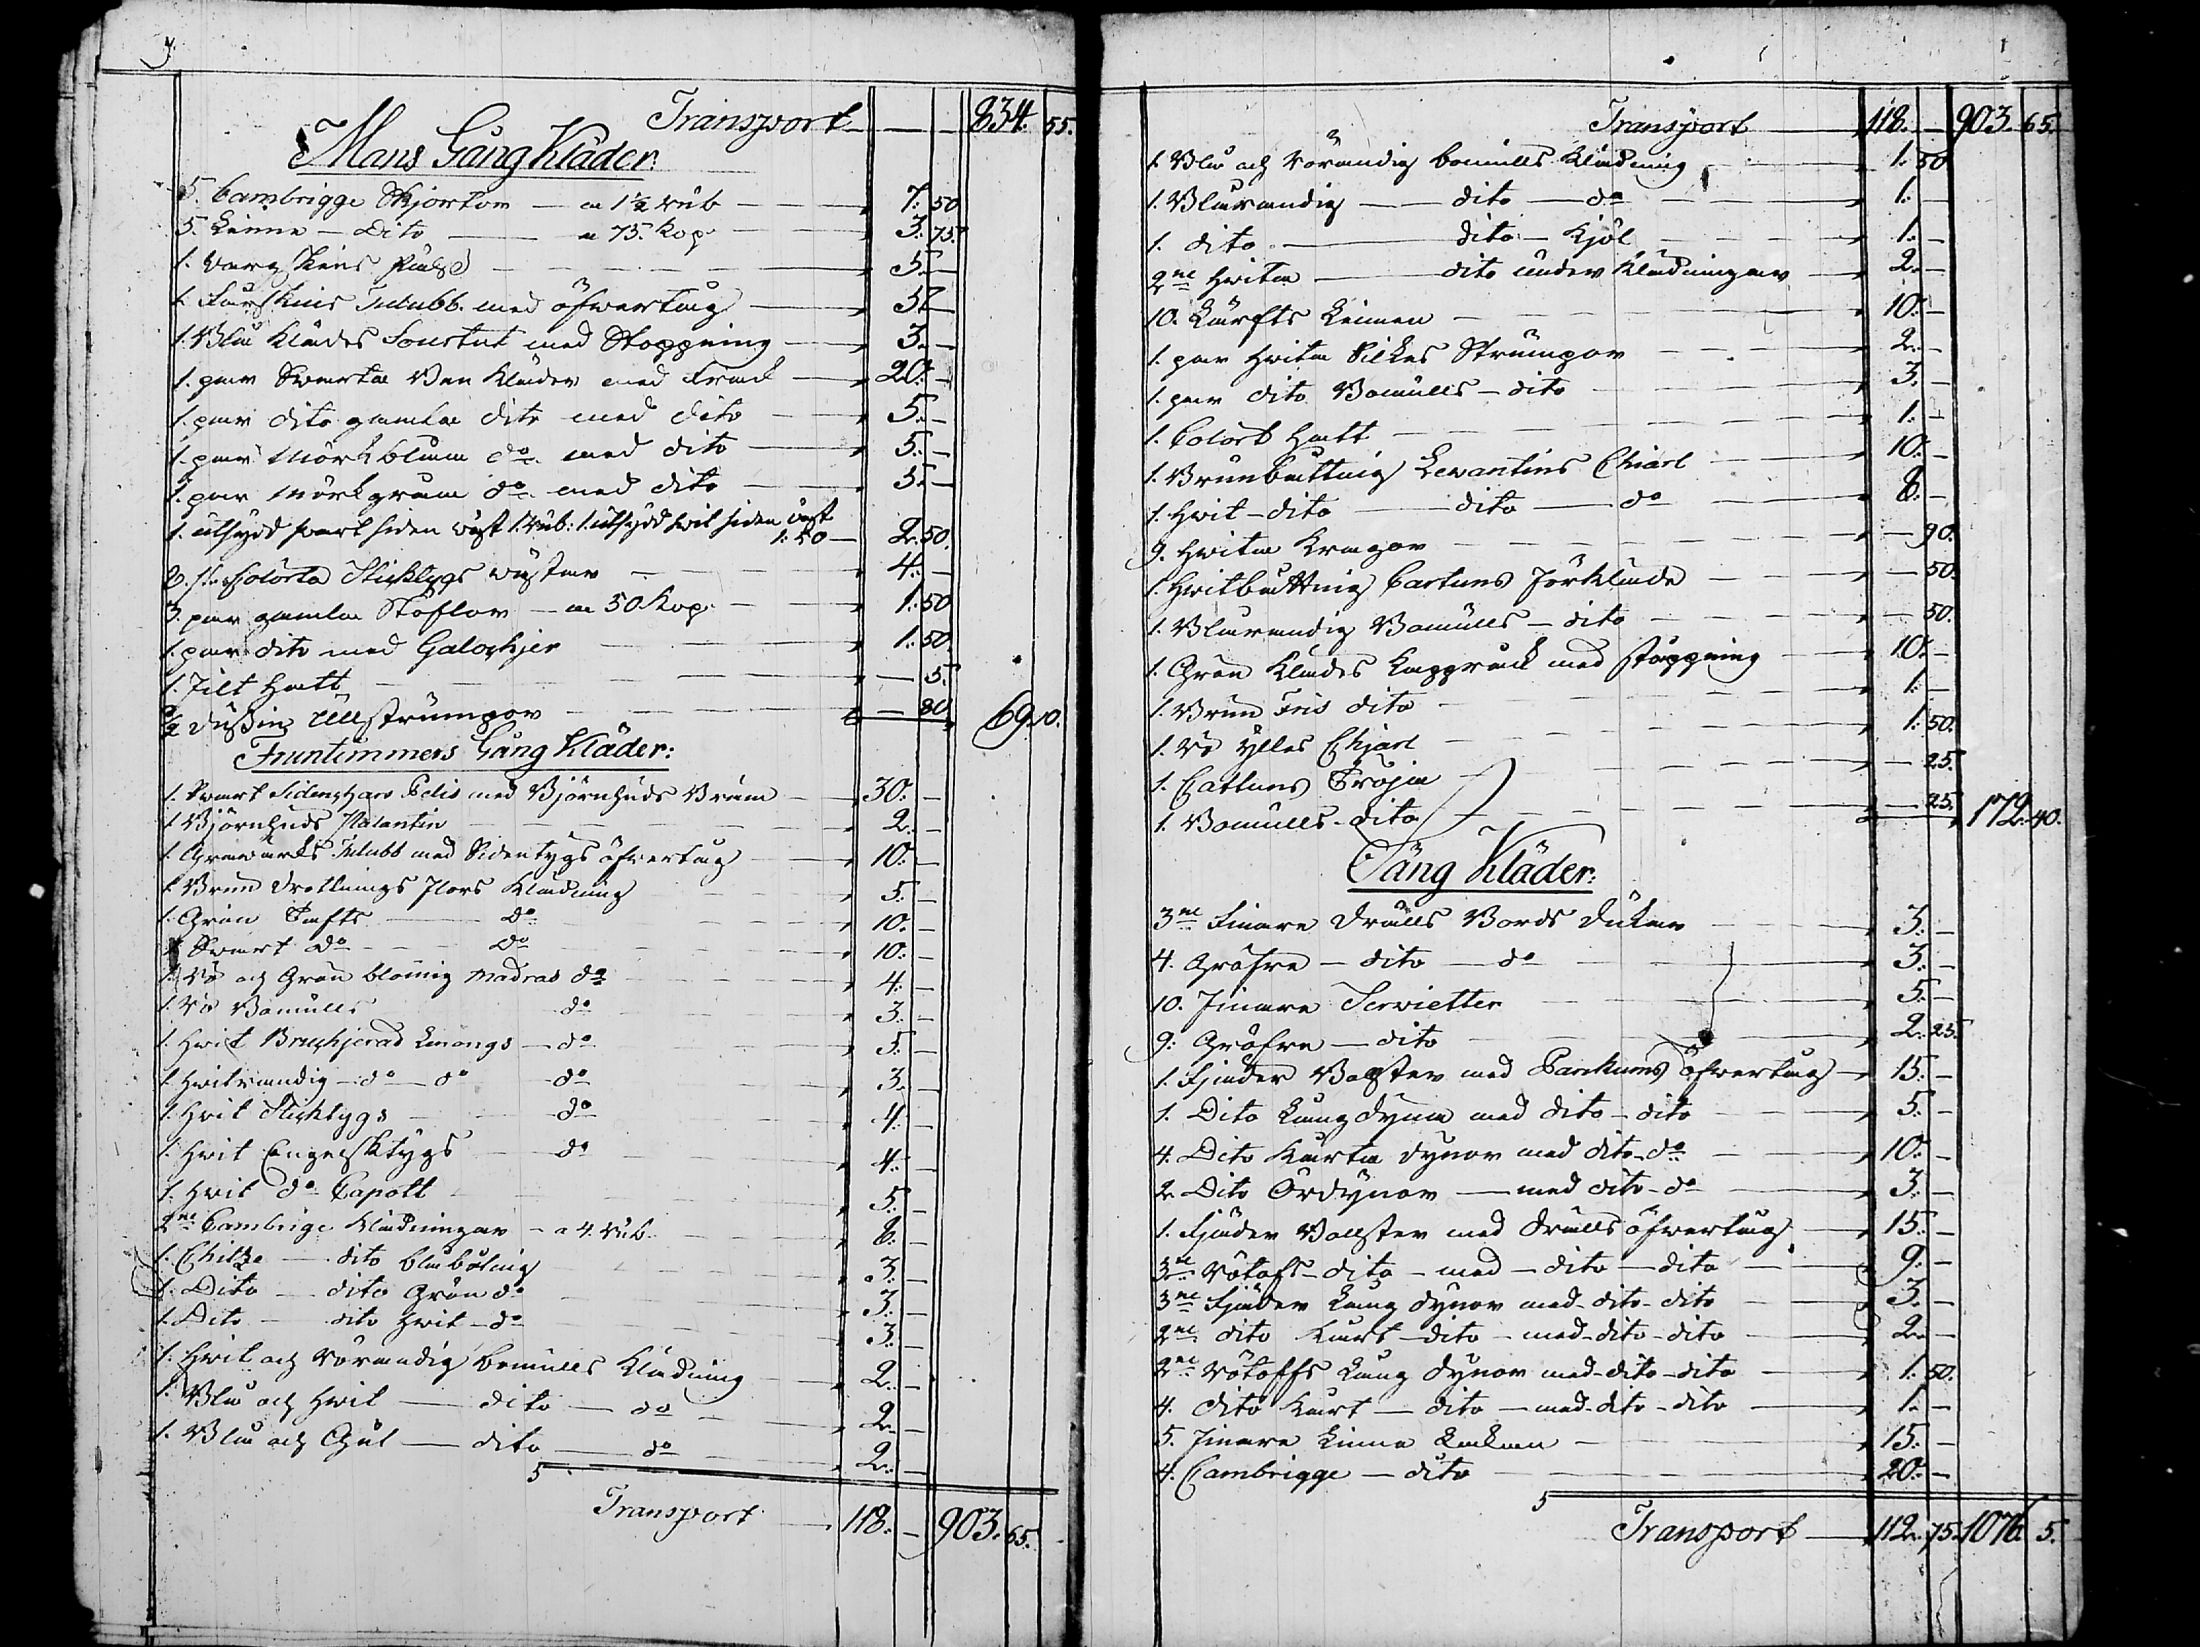 Transport — — — 834. 55.
Mans Gång Kläder:
5. Cambrigge Skjortor — a 1½ rub — — 7. 50
5. Linne — Dito — a 75. Kop — 3. 75.
1. Varg Skins Päls — — — 5. —
1. Fårskins Tulubb med öfvertåg — 5. —
1. Blå Klädes Sourtut med Stoppning — 3. —
1. par Svarta Ben Kläder med Frack — 20. —
1. par dito gamla dito med dito — 5. —
1. par Mörkblåa do med dito — 5. —
1. par Mörkgröna do med dito — 5. —
1. utsydd svart siden wäst 1. rub: 1. utsydd hvit siden wäst
1:50 — 2. 50.
8. st. Colörta Sticktygs wästar — 4. —
3. par gamla Stöflor — a 50 Kop — 1. 50
1. par dito med Galoschjer — 1. 50.
1. Filt Hatt — — 5.
½ dussin Ullstrumpor — — 80 69. 10.
Fruntimmers Gång Kläder:
1. Svart Siden Pelis med Björnhuds Bräm — 30. —
1. Björnhuds Palantin — 2. —
1. Gråwärks Tulubb med Sidentygs öfvertåg — 10. —
1. Brun Drottnings Flors Klädning — 5. —
1. Grön Tafts — do — 10. —
1. Svart do — do — 10. —
1. Rö och Grön blomig Madras do — 4. —
1. Rö Bomulls do — 3. —
1. Hvit Bruschjerad Linongs — do — 5. —
1. Hvitrandig — do — do — do — 3. —
1. Hvit Sticktygs — do — 4. —
1. Hvit Engelsktygs — do — 4. —
1. Hvit do Capott — 5. —
2ne Cambrige Klädningar — a 4. rub. — 8. —
1. Chitze — dito blåbotnig — 3. —
1. Dito — dito Grön do — 3. —
1. Dito — dito Hvit — do — 3. —
1. Hvit och Rörandig bomulls Klädning — 2. —
1. Blå och Hvit — dito — do — 2. —
1. Blå och Gul — dito — do — 2. —
Transport — 118. — 903. 65.
Transport — 118. — 903. 65.
1. Blå och Rörandig bomulls Klädning — 1. 50
1. Blårandig — dito — do — 1. —
1. dito — dito — Kjol — 1. —
2ne Hvita — dito under Klädningar — 2. —
10. Lärfts Linnen — 10. —
1. par Hvita Silkes Strumpor — 2. —
1. par dito Bomulls — dito — 3. —
1. Colört Hatt — 1. —
1. Brunbottnig Lewantins Chiarl — 10. —
1. Hvit — dito — dito — do — 8. —
9. Hvita Kragar — — 90.
1. Hvitbottnig Cartuns Förkläde — — 50.
1. Blårandig Bomulls — dito — — 50.
1. Grön Klädes Kapprock med stoppning — 10. —
1. Brun Fris dito — 1. —
1. Rö Ylles Chjarl — 1. 50.
1. Cattuns Tröja — — 25.
1. Bomulls — dito — — 25. 172. 40.
Säng Kläder:
3ne Finare Drälls Bords Dukar — 3. —
4. Gröfre — dito — do — 3. —
10. Finare Servietter — 5. —
9. Gröfre — dito — 2. 25.
1. Fjäder Bolster med Parkums öfvertåg — 15. —
1. Dito Lång dyna med dito — dito — 5. —
4. Dito Korta dynor med dito — do — 10. —
2. Dito Ördynor — med dito — do — 3. —
1. Fjäder Bolster med drälls öfvertåg — 15. —
3ne Rötofs — dito — med — dito — dito — 9. —
3ne Fjäder Lång dynor med — dito — dito — 3. —
2ne dito Kort — dito — med — dito — dito — 2. —
2ne Rötoffs Lång dynor med — dito — dito — 1. 50.
4. dito Kort — dito — med — dito — dito — 1. —
5. Finare Linne Lakan — 15. —
4. Cambrigge — dito — 20. —
Transport — 112. 75. 1076. 5.